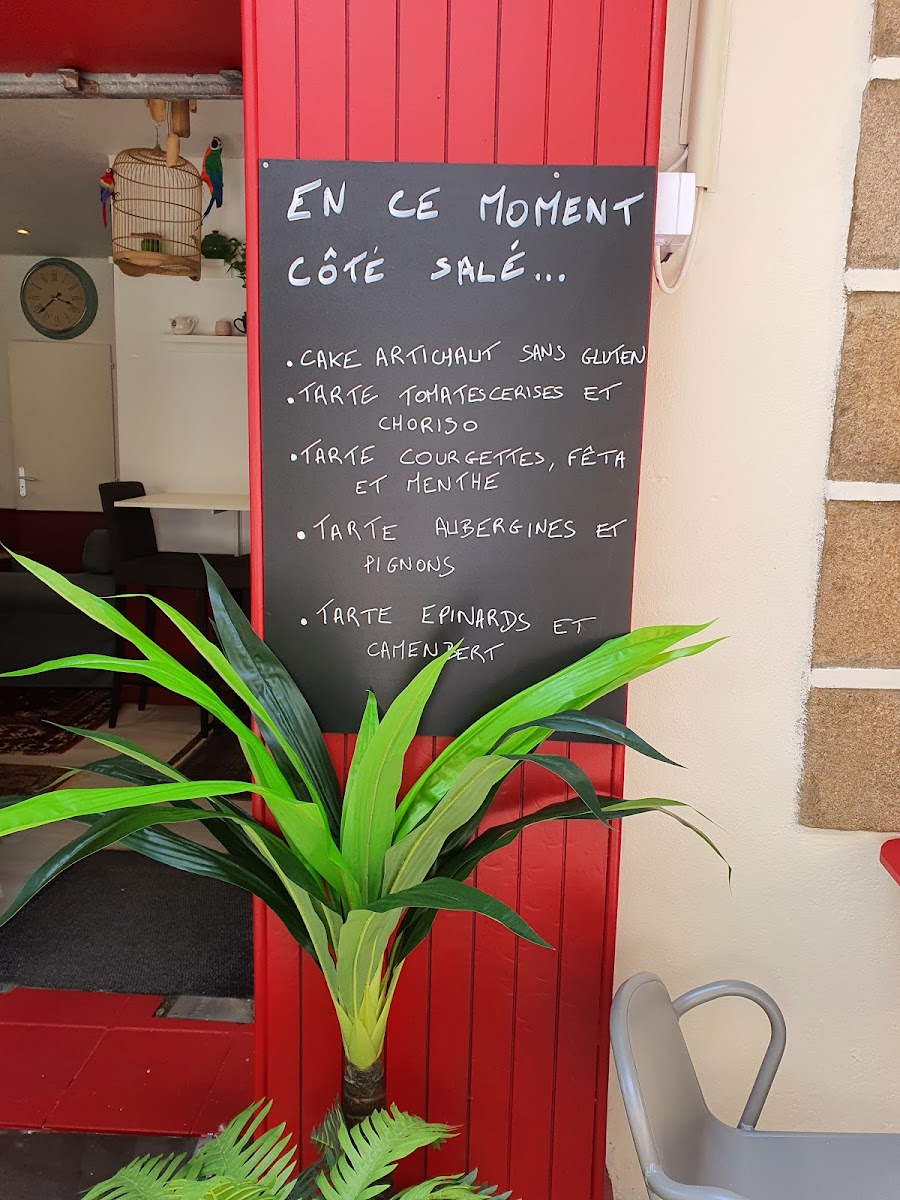 EN CE MOMENT
CÔTÉ SALÉ...
• CAKE ARTICHAUT SANS GLUTEN
• TARTE TOMATESCERISES ET
CHORISO
• TARTE COURGETTES, FÊTA
ET MENTHE
• TARTE AUBERGINES ET
PIGNONS
• TARTE EPINARDS ET
CAMENBERT